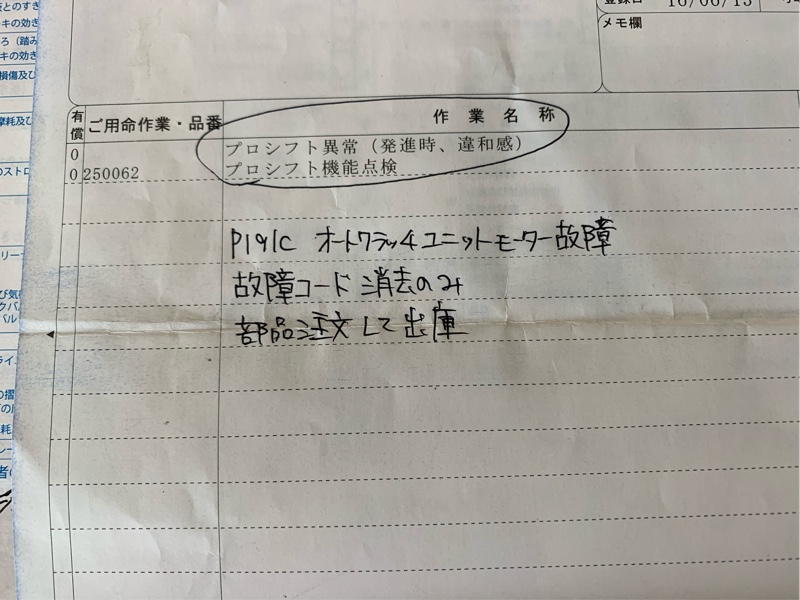 キの効き
ろ（踏み
キの効き
損傷及び
摩耗及び
のストロ
登録日 16/06/13
メモ欄
有償 ご用命作業・品番 作業名称
0 プロシフト異常（発進時、違和感）
0 250062 プロシフト機能点検
P191C オートクラッチユニットモーター故障
故障コード消去のみ
部品注文して出庫